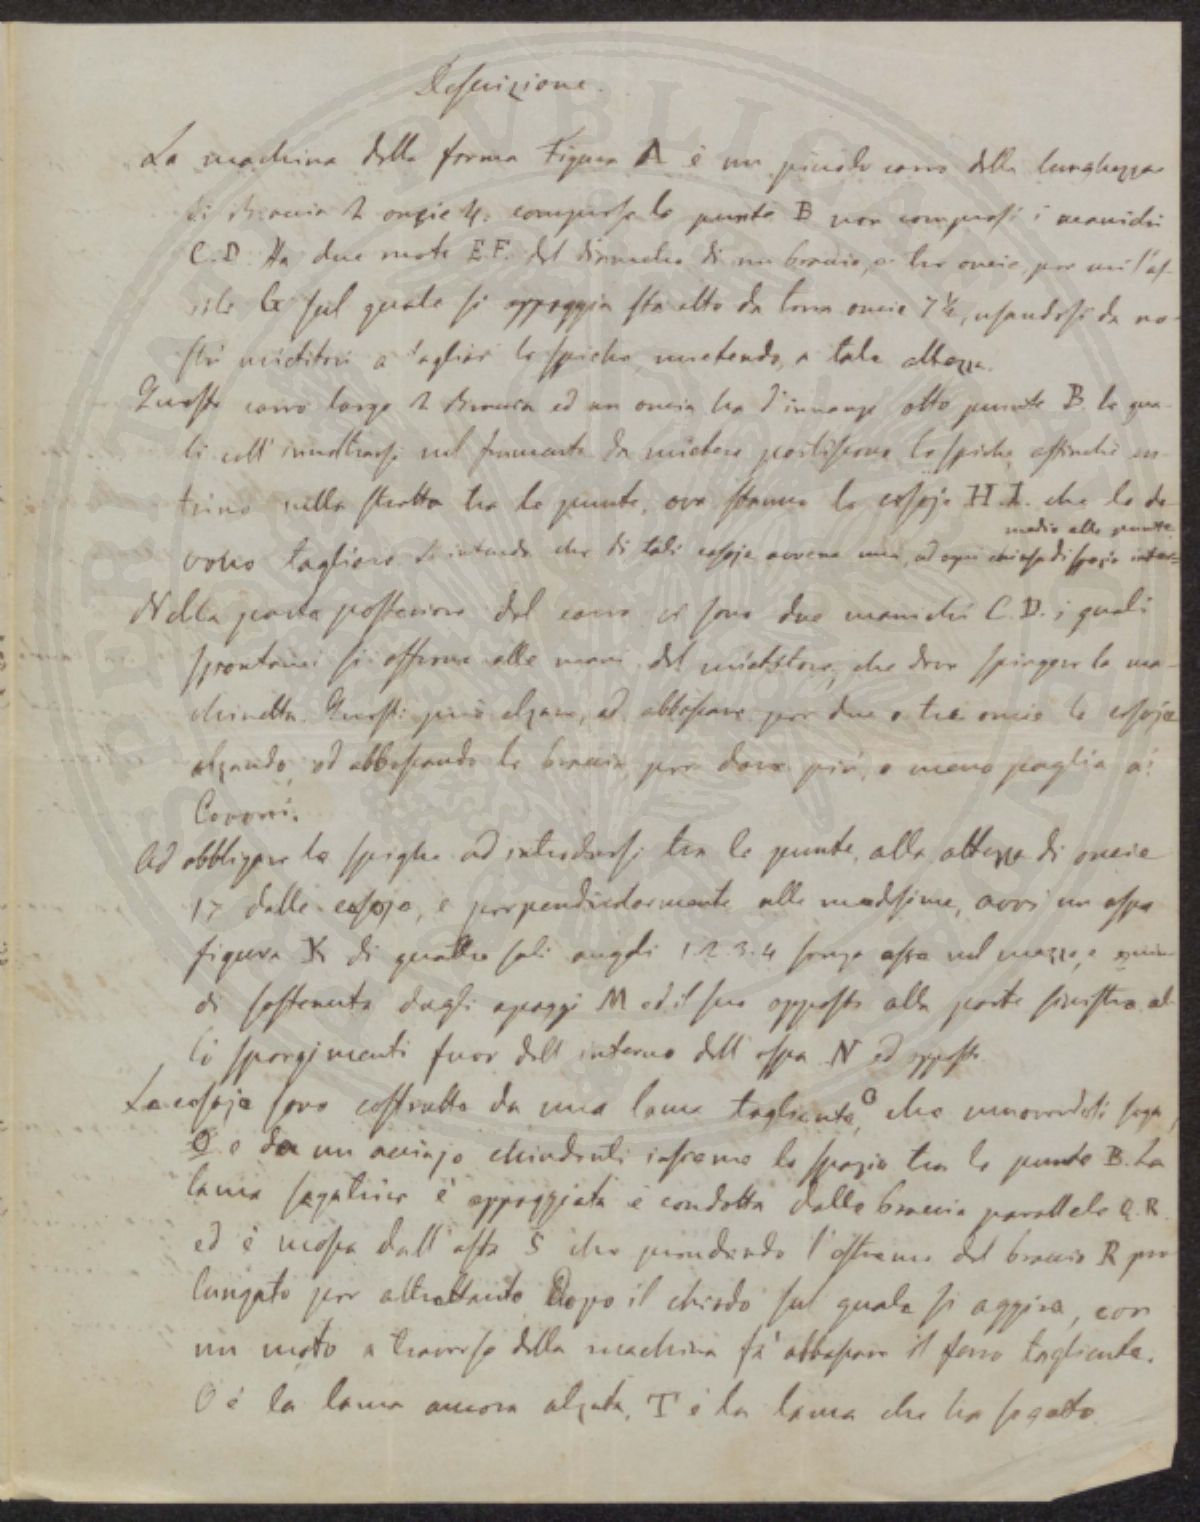 Descrizione.
La machina della forma Figura A è un piccolo carro della lunghezza
di Braccia 2 oncie 4. comprese le punte B non compresi i manichi
C.D. Ha due ruote E.F. del diametro di un braccio, e tre oncie, per cui l'as-
sile G sul quale si appoggia sta alto da terra oncie 7½, usandosi da no-
stri mietitori a tagliar le spiche mietendo, a tale altezza.
Questo carro largo 2 Braccia ed un oncia ha d'innanzi otto punte B. le qua-
li coll'innoltrarsi nel frumento da mietere partiscono le spiche, affinché en-
trino nella stretta tra le punte, ove stanno le cesoje H.I. che le de-
vono tagliare. S'intende che di tali cesoje avvene una, ad ogni spazio inter-
medio alle punte.
Nella parte posteriore del carro vi sono due manichi C.D. i quali
spontanei si offrono alle mani del mietitore, che deve spingere la ma-
chinetta. Questi può alzare, ed abbassare per due o tre oncie le cesoje
alzando, ed abbassando le braccia, per dare più, o meno paglia ai
Covoni.
Ad obbligare le spighe ad introdursi tra le punte, alla altezza di oncie
17 dalle cesoje, e perpendicolarmente alle medesime, avvi un aspa
figura K di quattro soli angoli 1.2.3.4 senza assa nel mezzo, e quin-
di sostenuta dagli apoggi M ed il suo opposto alla parte sinistra al-
li sporgimenti fuor dell interno dell'aspa N ed opposto.
Le cesoje sono costrutte da una lama tagliente O, che muovendosi sega,
e da un acciajo chiudenti insieme lo spazio tra le punte B. La
lama segatrice è appoggiata e condotta dalle braccia parallele Q.R.
ed è mossa dall'asta S che prendendo l'estremo del braccio R pro-
lungato per altrettanto dopo il chiodo sul quale si aggira, con
un moto a traverso della machina fa abbassare il ferro tagliente.
O è la lama ancora alzata, T è la lama che ha segato.